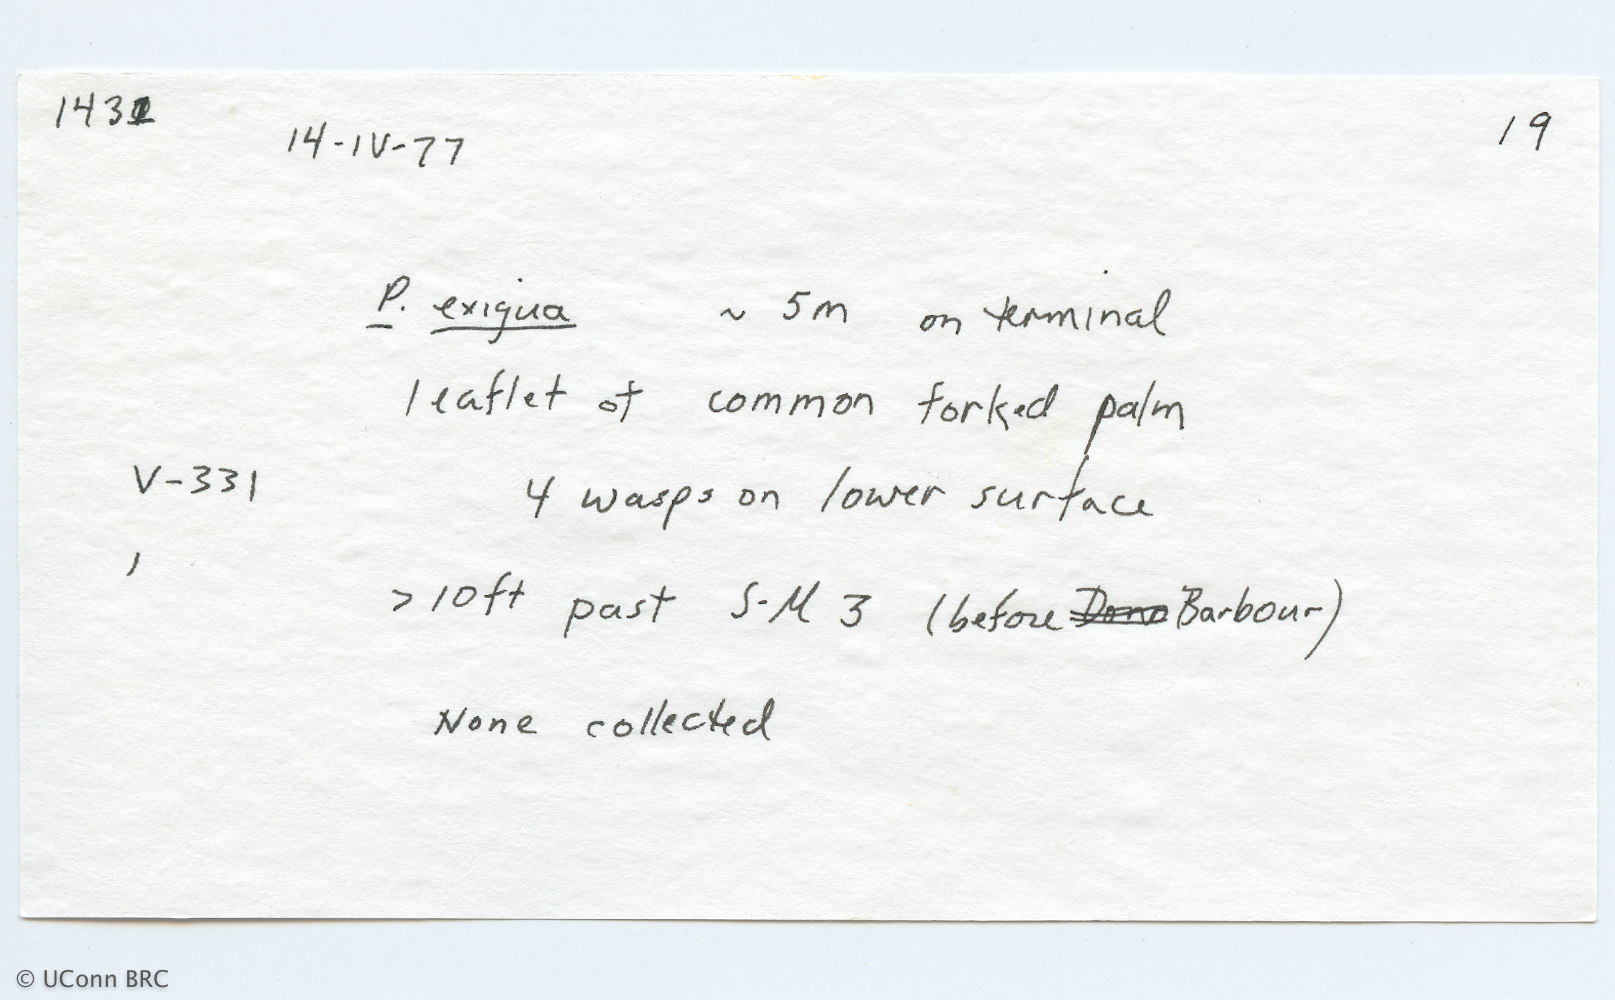 143
14-IV-77
19
P. exigua ~ 5m on terminal
leaflet of common forked palm
V-331 4 wasps on lower surface
1
>10ft past S-M 3 (before Barbour)
None collected
© UConn BRC